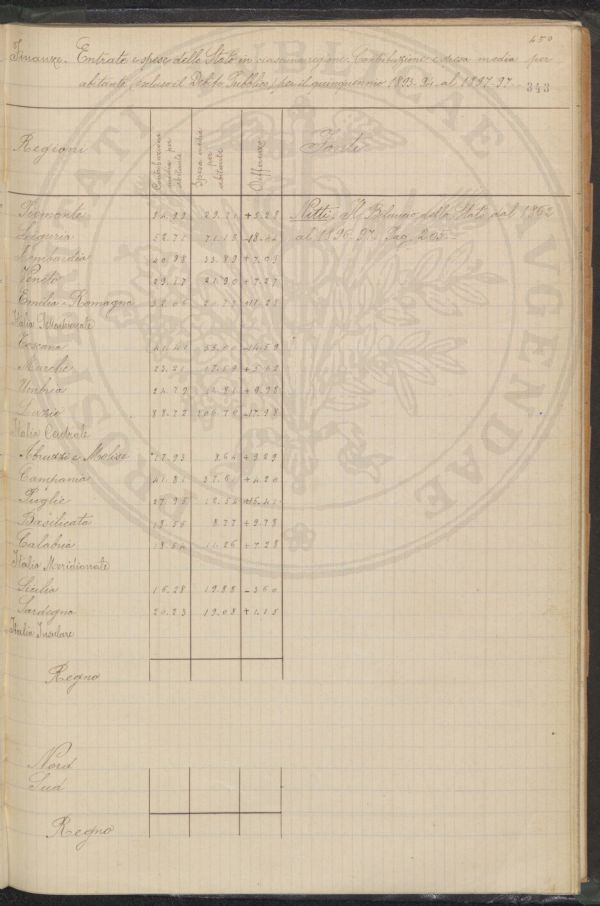 450
Finanze. Entrate e spese dello Stato in ciascuna regione. Contribuzione e spesa media per
abitante (escluso il Debito Pubblico) per il quinquennio 1893-94 al 1897-97. 343
Regioni Contribuzione media per abitante Spesa media per abitante Differenza Fonti
Piemonte +5.28 Nitti: Il Bilancio dello Stato dal 1862
Liguria 71.13 al 1896-97. Pag. 205.-
Lombardia 40.98 33.89 +7.09
Veneto 29.17 21.90 +7.27
Emilia-Romagna
Italia Settentrionale
Toscana
Marche
Umbria 24.79 14.81 +9.98
Lazio 88.72 106.70 -17.98
Italia Centrale
Abruzzi e Molise 17.93 8.64 +9.29
Campania 41.81 37.61 +4.20
Puglie 27.95 12.54 +15.41
Basilicata 18.55 8.77 +9.78
Calabria 18.54 11.26 +7.28
Italia Meridionale
Sicilia 16.28 19.88 -3.60
Sardegna 20.23 19.08 +1.15
Italia Insulare
Regno
Nord
Sud
Regno
PUBLICAE AVGENDAE